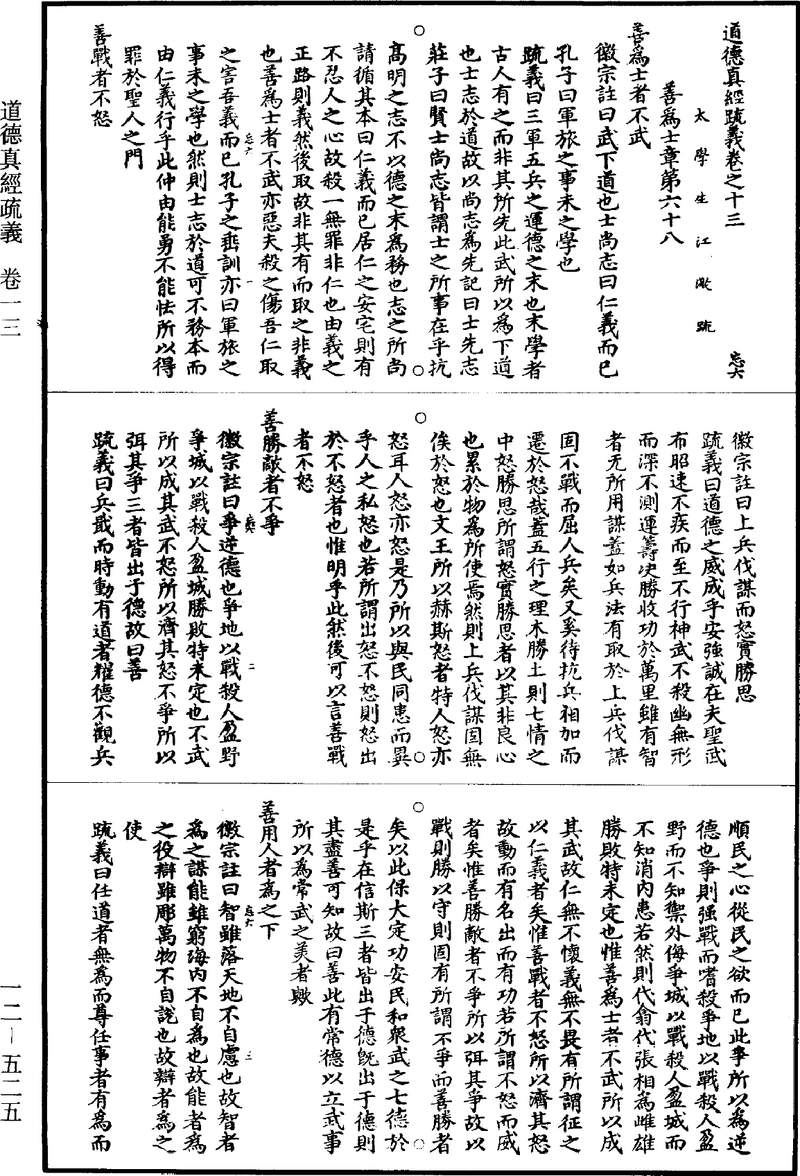 道德真經疏義卷之十三
太學生江澂疏 忠六
善為士章第六十八
善為士者不武
徽宗註曰武下道也士尚志曰仁義而已
孔子曰軍旅之事未之學也
疏義曰三軍五兵之運德之末也末學者
古人有之而非其所先此武所以為下道
也士志於道故以尚志為先記曰士先志
莊子曰賢士尚志皆謂士之所事在乎抗
高明之志不以德之末為務也志之所尚
請循其本曰仁義而已居仁之安宅則有
不忍人之心故殺一無罪非仁也由義之
正路則義然後取故非其有而取之非義
也善為士者不武亦惡夫殺之傷吾仁取
之害吾義而已孔子之垂訓亦曰軍旅之
事未之學也然則士志於道可不務本而
由仁義行乎此仲由能勇不能怯所以得
罪於聖人之門
善戰者不怒
徽宗註曰上兵伐謀而怒實勝思
疏義曰道德之威成乎安強誠在夫聖武
布昭速不疾而至不行神武不殺幽無形
而深不測運籌決勝收功於萬里雖有智
者无所用謀蓋如兵法有取於上兵伐謀
固不戰而屈人兵矣又奚待抗兵相加而
遷於怒哉蓋五行之理木勝土則七情之
中怒勝思所謂怒實勝思者以其非良心
也累於物為所使焉然則上兵伐謀固無
俟於怒也文王所以赫斯怒者特人怒亦
怒耳人怒亦怒是乃所以與民同患而異
乎人之私怒也若所謂出怒不怒則怒出
於不怒者也惟明乎此然後可以言善戰
者不怒
善勝敵者不爭
徽宗註曰爭逆德也爭地以戰殺人盈野
爭城以戰殺人盈城勝敗特未定也不武
所以成其武不怒所以濟其怒不爭所以
弭其爭三者皆出于德故曰善
疏義曰兵戢而時動有道者耀德不觀兵
順民之心從民之欲而已此爭所以為逆
德也爭則強戰而嗜殺爭地以戰殺人盈
野而不知禦外侮爭城以戰殺人盈城而
不知消內患若然則代翕代張相為雌雄
勝敗特未定也惟善為士者不武所以成
其武故仁無不懷義無不畏有所謂征之
以仁義者矣惟善戰者不怒所以濟其怒
故動而有名出而有功若所謂不怒而威
者矣惟善勝敵者不爭所以弭其爭故以
戰則勝以守則固有所謂不爭而善勝者
矣以此保大定功安民和衆武之七德於
是乎在信斯三者皆出于德既出于德則
其盡善可知故曰善此有常德以立武事
所以為常武之美者歟
善用人者為之下
徽宗註曰智雖落天地不自慮也故智者
為之謀能雖窮海內不自為也故能者為
之役辯雖彫萬物不自說也故辯者為之
使
疏義曰任道者無為而尊任事者有為而
道德真經疏義 卷一三
一二－五二五